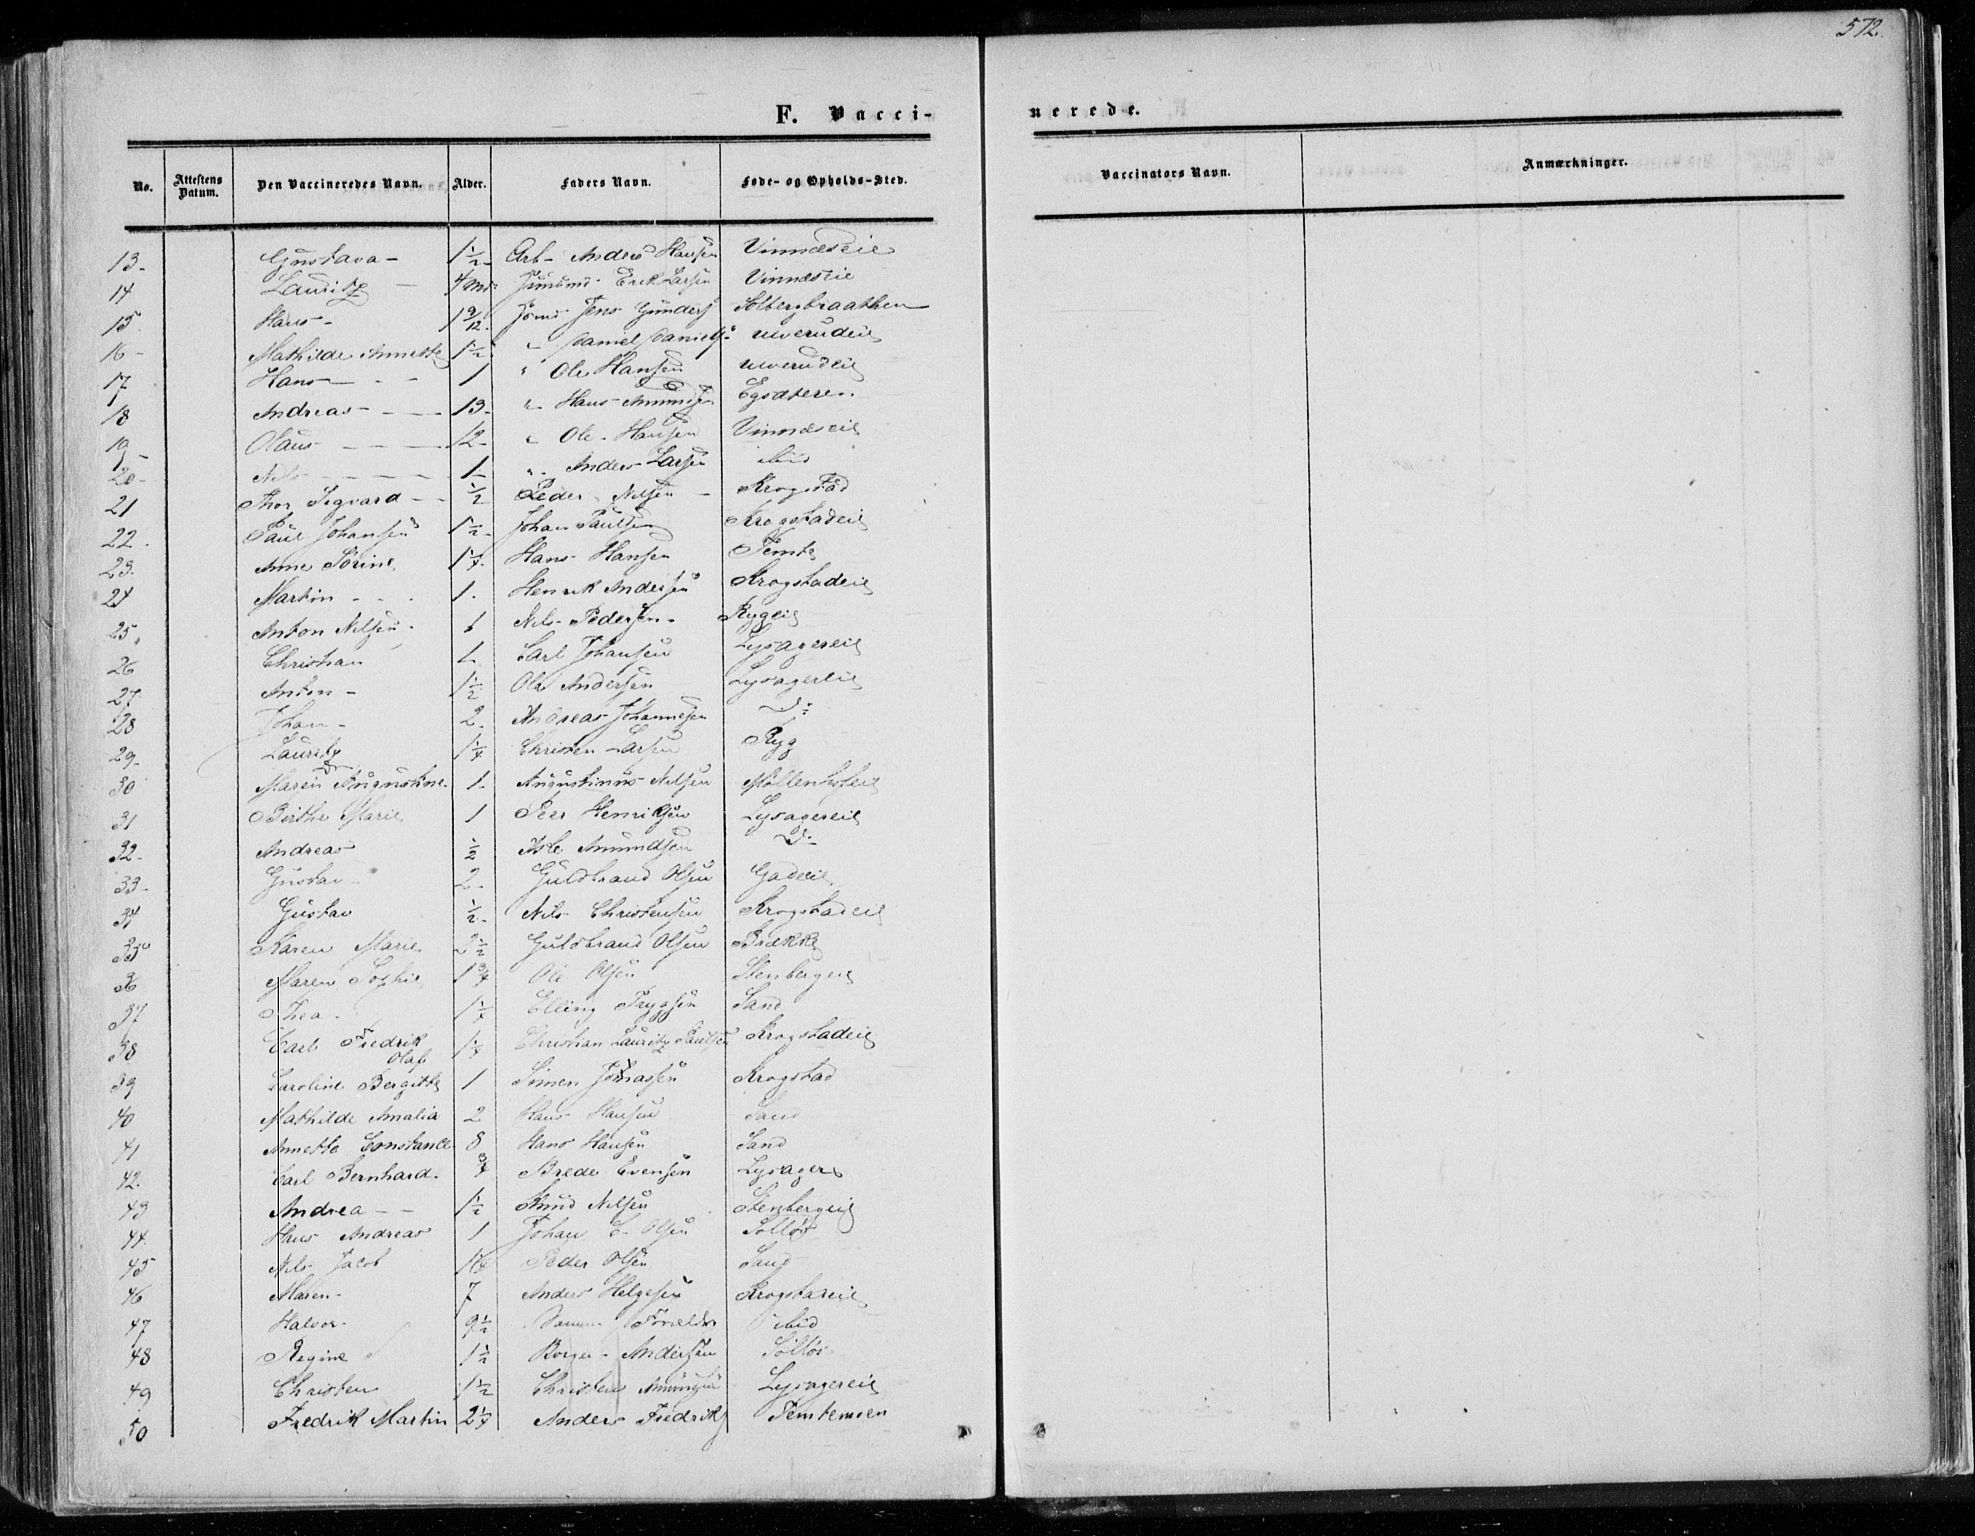 572.
F. Vacci-
nerede.
No. Attestens Datum. Den Vaccineredes Navn. Alder. Faders Navn. Føde- og Opholds-Sted.
Vaccinators Navn. Anmærkninger.
13- Gustava- 1½- Arb- Anders Hansen Vinnæseie
14 Lauritz - 4 Md. Erik Larsen Vinnæseie
15 Hans- 1 9/12. Jens Gunders Solbergbraathen
16- Mathilde Annette 1½ " Daniel Daniels. Ulverudeie
17 Hans - - 1 " Ole Hansen Ulverudeie
18 Andreas - - - 13- " Hans Amunds Egsæteren
19 Olaus - - - 12- " Ole Hansen Vinnæseie
20- Nils - - - 1- " Anders Larsen ibid
21 Thor Sigvard - - ½ Peder Nilsen - Krogstad
22. Paul Johansen 1½- Johan Paulsen Krogstadeie
23. Anne Sørine 1¼- Hans Hansen Temte
24 Martin - - - 1. Henrik Andersen Krogstadeie
25. Anton Nilsen - 1 Nils Pedersen- Rygeie
26 Christian 1. Carl Johansen Lysagereie
27. Anton - 1½ Ole Andersen Lysagereie
28 Johan - 2. Andreas Johannesen do
29. Lauritz 1¼ Christen Larsen Ryg
30 Maren Augustine 1- Augustinus Nilsen
31 Berthe Marie 1 Peer Henriksen Lysagereie
32- Andreas ½ Asle Amundsen do
33- Gustav - 2- Guldbrand Olsen Gadeeie
34 Gustav ½- Nils Christensen Krogstadeie
35 Karen Marie 2½ Guldbrand Olsen Brække
36 Maren Sophie 1¾ Ole Olsen Stenbergeie
37 Thea. 1¼ Elling Tryggsen Sand
38 Carl Fredrik Olaf 1¼ Christian Lauritz Paulsen Krogstadeie
39 Caroline Bergitte 1 Simen Jonassen Krogstad
40 Mathilde Amalia 2 Hans Hansen Sand
41 Annette Constance 8 Hans Hansen Sand
42. Carl Bernhard. ¾ Brede Evensen Lysager
43 Andrea - - 1½ Knud Nilsen Stenbergeie
44 Hans Andreas 1 Johan E. Olsen Solløs
45 Nils Jacob Peder Olsen Sand
46 Maren- 7 Anders Helgesen Krogstadeie
47 Halvor- 9½ Samme Forældre ibid
48 Regine 1½ Borger Andersen Solløs
49 Christen 1½ Christen Amundsen Lysagereie
50 Fredrik Martin 2¼ Anders Fredriks Temtemoen